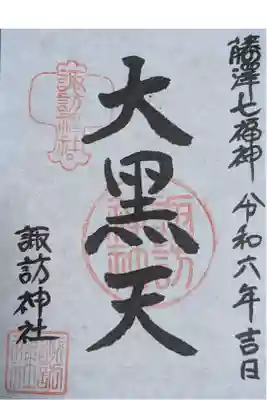 藤澤七福神 令和六年吉日
大黒天
諏訪神社
諏訪神社
諏訪神社